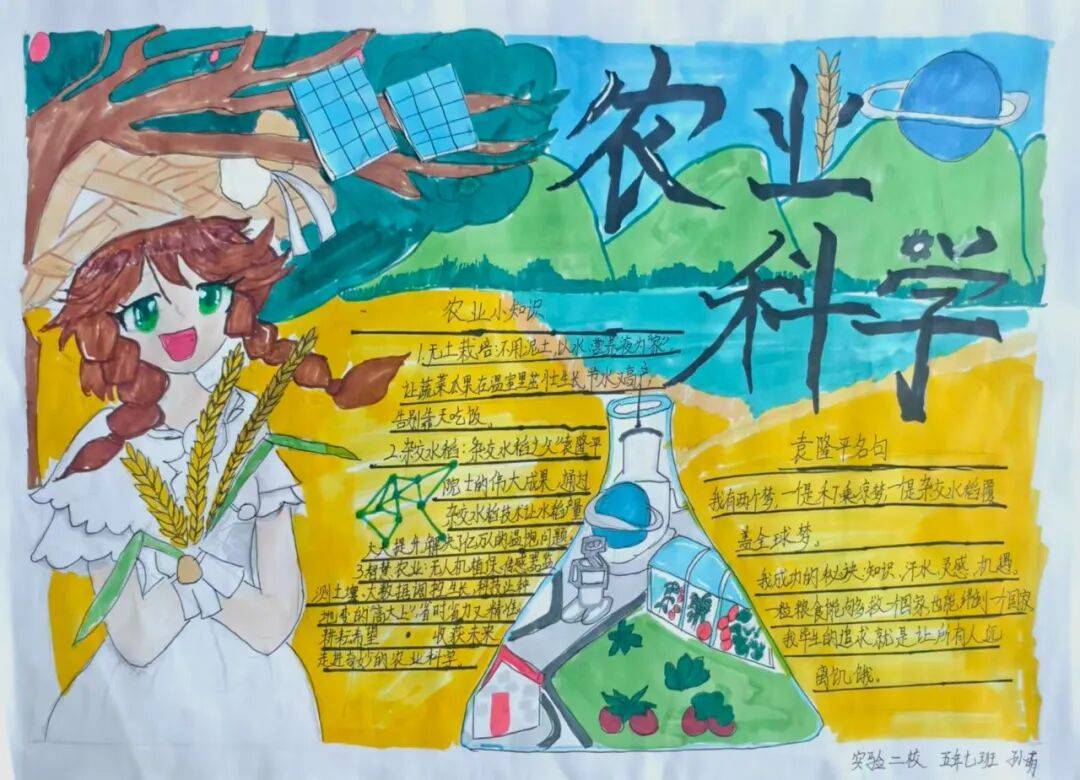 农业
科学
农业小知识
1.无土栽培:不用泥土,以水、营养液为"家",
让蔬菜瓜果在温室里茁壮生长,节水又高产,
告别靠天吃饭。
2.杂交水稻:杂交水稻之父"袁隆平
院士的伟大成果,通过
杂交水稻技术让水稻产量
大大提升,解决了亿万人的温饱问题。
3.智慧农业:无人机植保、传感器监
测土壤、大数据调控生长,科技让种
地变的"高大上"省时省力又精准。
播种希望 · 收获未来
走进奇妙的农业科学
袁隆平名句
我有两个梦,一个是禾下乘凉梦,一个是杂交水稻覆
盖全球梦。
我成功的秘诀:知识、汗水、灵感、机遇
一粒粮食能够救一个国家,也能绊倒一个国家
我毕生的追求就是让所有人远
离饥饿。
实验二校 五年七班 孙萌